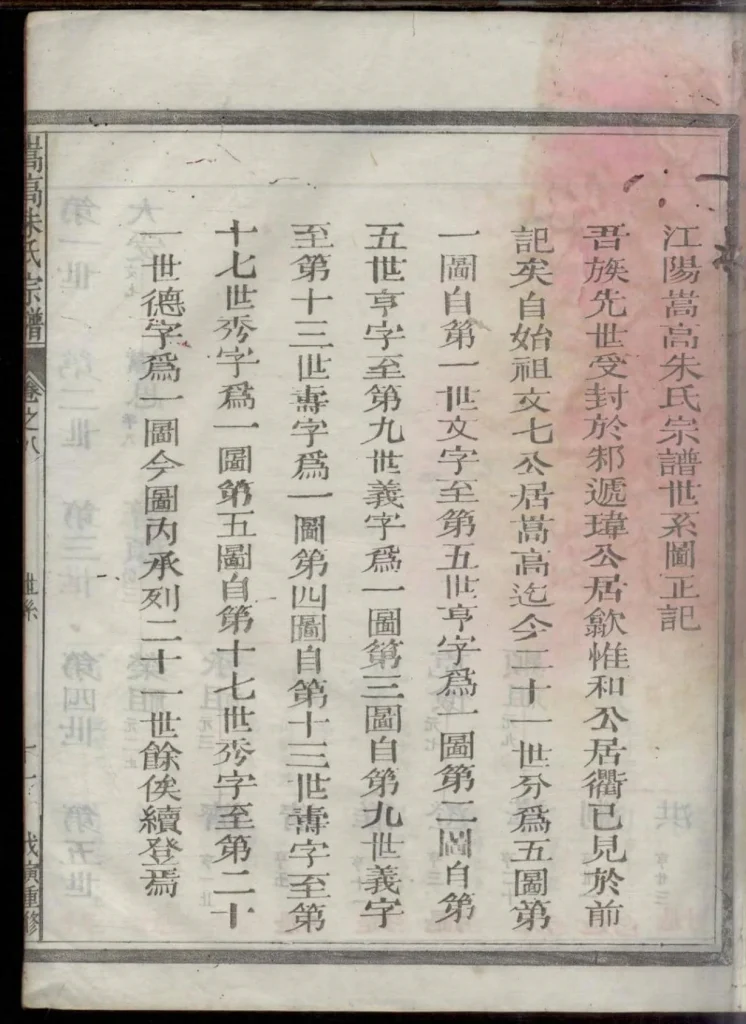 江陽嵩高朱氏宗譜世系圖正記
吾族先世受封於邾遞瑋公居歙惟和公居衢已見於前
記矣自始祖文七公居嵩高迄今二十一世分為五圖第
一圖自第一世文字至第五世亨字為一圖第二圖自第
五世亨字至第九世義字為一圖第三圖自第九世義字
至第十三世壽字為一圖第四圖自第十三世壽字至第
十七世秀字爲一圖第五圖自第十七世秀字至第二十
一世德字爲一圖今圖內承列二十一世餘俟續登焉
嵩高朱氏宗譜
卷之八
世系
戊寅重修